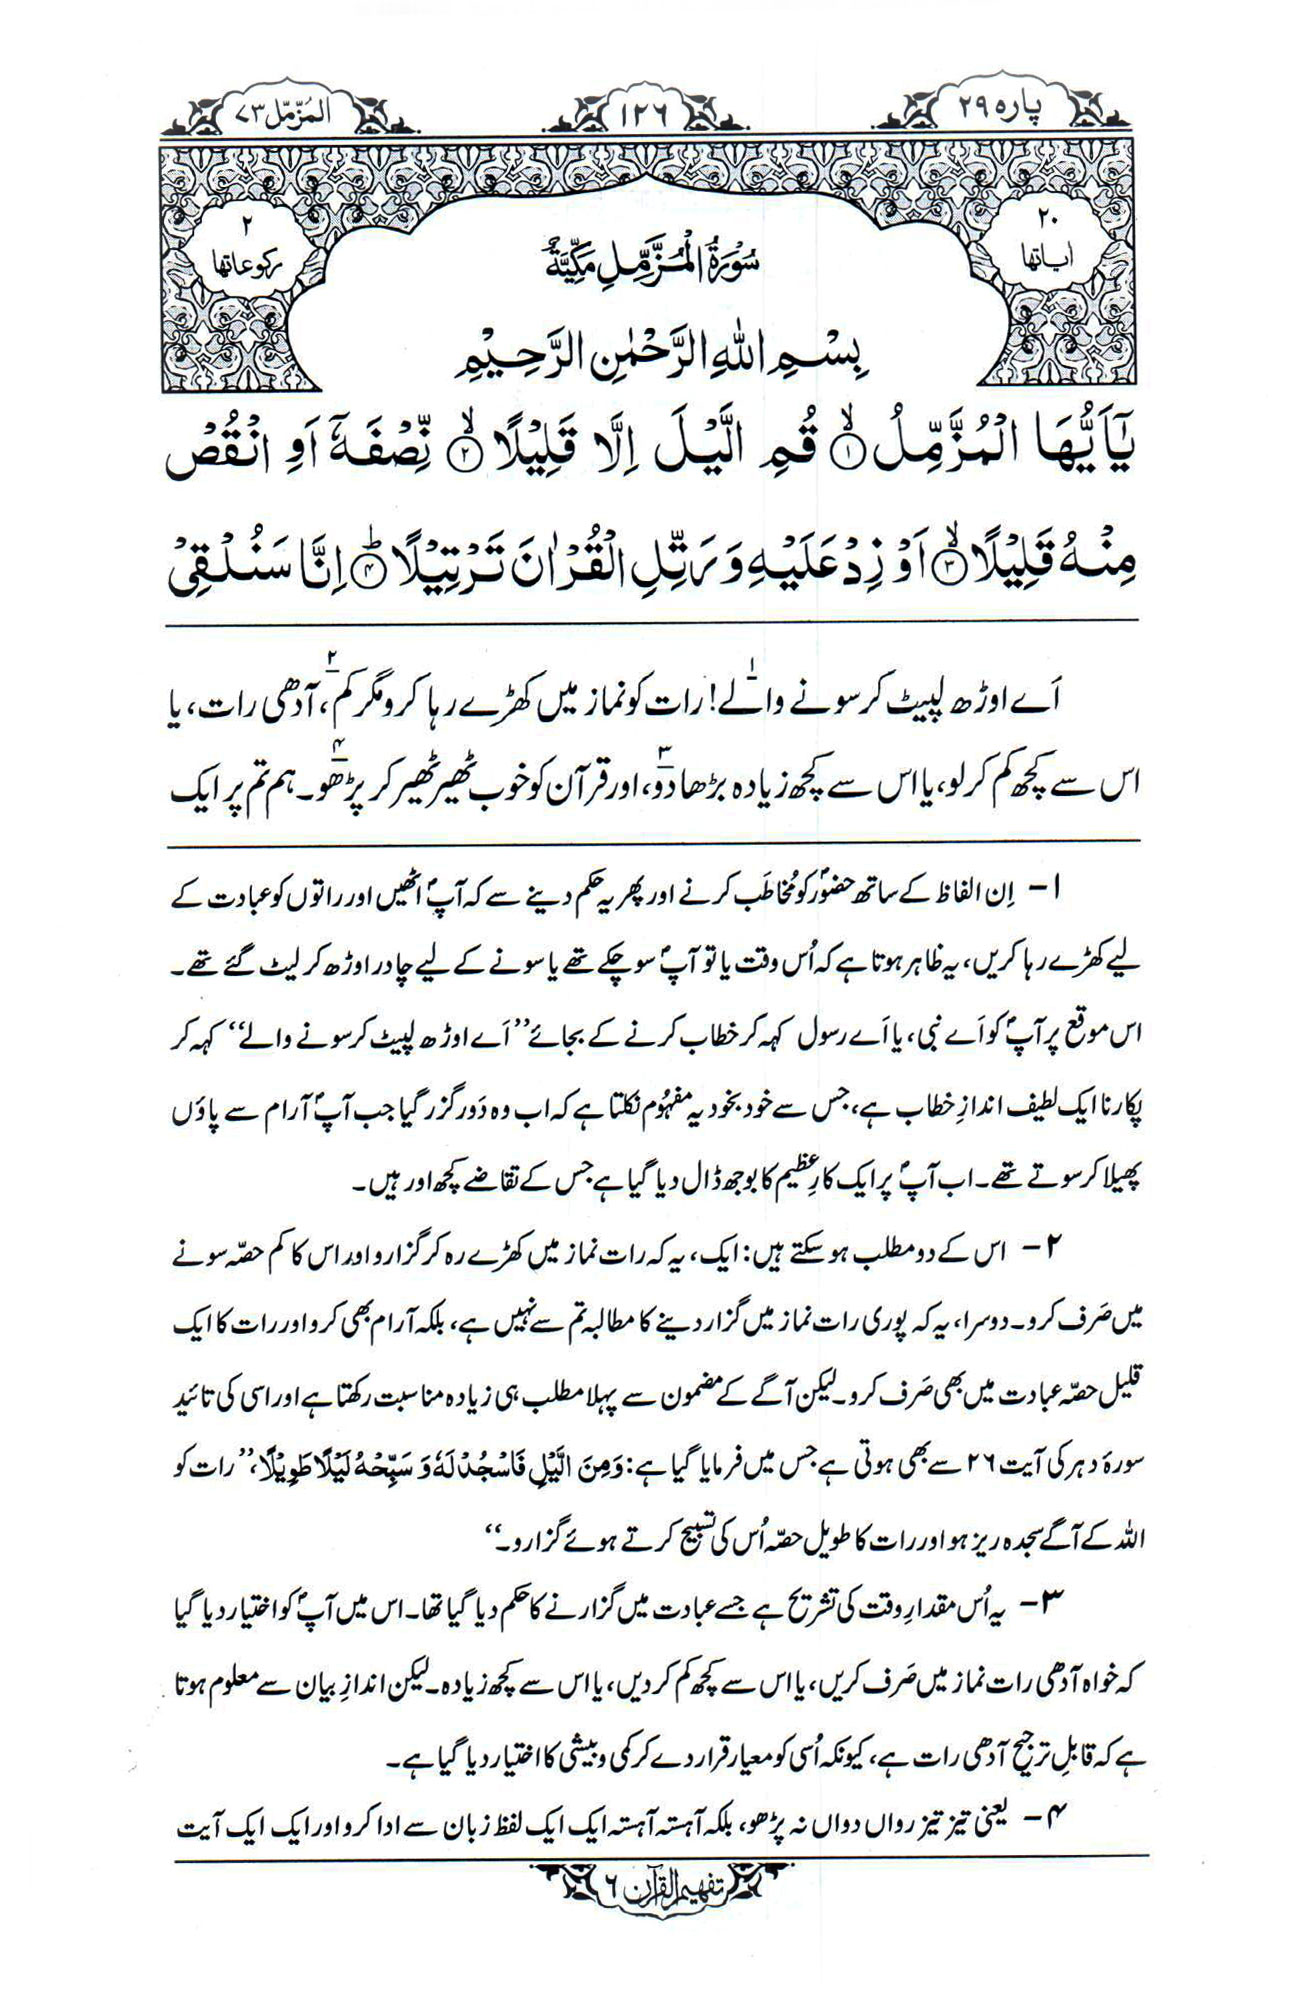 پارہ ۲۹
۱۲۶
المُزّمِّل ۷۳
۲۰
اٰیاتها
۲
رکوعاتها
سُوْرَةُ الْمُزَّمِّلِ مَكِّيَّةٌ
بِسْمِ اللهِ الرَّحْمٰنِ الرَّحِيْمِ
يٰۤاَيُّهَا الْمُزَّمِّلُ ۙ﴿۱﴾ قُمِ الَّيْلَ اِلَّا قَلِيْلًا ۙ﴿۲﴾ نِّصْفَهٗۤ اَوِ انْقُصْ
مِنْهُ قَلِيْلًا ۙ﴿۳﴾ اَوْ زِدْ عَلَيْهِ وَ رَتِّلِ الْقُرْاٰنَ تَرْتِيْلًا ؕ﴿۴﴾ اِنَّا سَنُلْقِيْ
اَے اوڑھ لپیٹ کر سونے والے!۱ رات کو نماز میں کھڑے رہا کرو مگر کم،۲ آدھی رات، یا
اس سے کچھ کم کر لو، یا اس سے کچھ زیادہ بڑھا دو،۳ اور قرآن کو خوب ٹھیر ٹھیر کر پڑھو۔۴ ہم تم پر ایک
۱ – اِن الفاظ کے ساتھ حضورؐ کو مُخاطَب کرنے اور پھر یہ حکم دینے سے کہ آپؐ اٹھیں اور راتوں کو عبادت کے
لیے کھڑے رہا کریں، یہ ظاہر ہوتا ہے کہ اُس وقت یا تو آپؐ سو چکے تھے یا سونے کے لیے چادر اوڑھ کر لیٹ گئے تھے۔
اس موقع پر آپؐ کو اَے نبی، یا اَے رسول کہہ کر خطاب کرنے کے بجائے ”اَے اوڑھ لپیٹ کر سونے والے“ کہہ کر
پکارنا ایک لطیف اندازِ خطاب ہے، جس سے خود بخود یہ مفہُوم نکلتا ہے کہ اب وہ دَور گزر گیا جب آپؐ آرام سے پاؤں
پھیلا کر سوتے تھے۔ اب آپؐ پر ایک کارِ عظیم کا بوجھ ڈال دیا گیا ہے جس کے تقاضے کچھ اور ہیں۔
۲ – اس کے دو مطلب ہو سکتے ہیں: ایک، یہ کہ رات نماز میں کھڑے رہ کر گزارو اور اس کا کم حصّہ سونے
میں صَرف کرو۔ دوسرا، یہ کہ پوری رات نماز میں گزار دینے کا مطالبہ تم سے نہیں ہے، بلکہ آرام بھی کرو اور رات کا ایک
قلیل حصّہ عبادت میں بھی صَرف کرو۔ لیکن آگے کے مضمون سے پہلا مطلب ہی زیادہ مناسبت رکھتا ہے اور اسی کی تائید
سورۂ دہر کی آیت ۲۶ سے بھی ہوتی ہے جس میں فرمایا گیا ہے: وَمِنَ الَّيْلِ فَاسْجُدْ لَهٗ وَ سَبِّحْهُ لَيْلًا طَوِيْلًا، ”رات کو
اللہ کے آگے سجدہ ریز ہو اور رات کا طویل حصّہ اُس کی تسبیح کرتے ہوئے گزارو۔“
۳ – یہ اُس مقدارِ وقت کی تشریح ہے جسے عبادت میں گزارنے کا حکم دیا گیا تھا۔ اس میں آپؐ کو اختیار دیا گیا
کہ خواہ آدھی رات نماز میں صَرف کریں، یا اس سے کچھ کم کر دیں، یا اس سے کچھ زیادہ۔ لیکن اندازِ بیان سے معلوم ہوتا
ہے کہ قابلِ ترجیح آدھی رات ہے، کیونکہ اُسی کو معیار قرار دے کر کمی و بیشی کا اختیار دیا گیا ہے۔
۴ – یعنی تیز تیز رواں دواں نہ پڑھو، بلکہ آہستہ آہستہ ایک ایک لفظ زبان سے ادا کرو اور ایک ایک آیت
تفہیم القرآن ۶